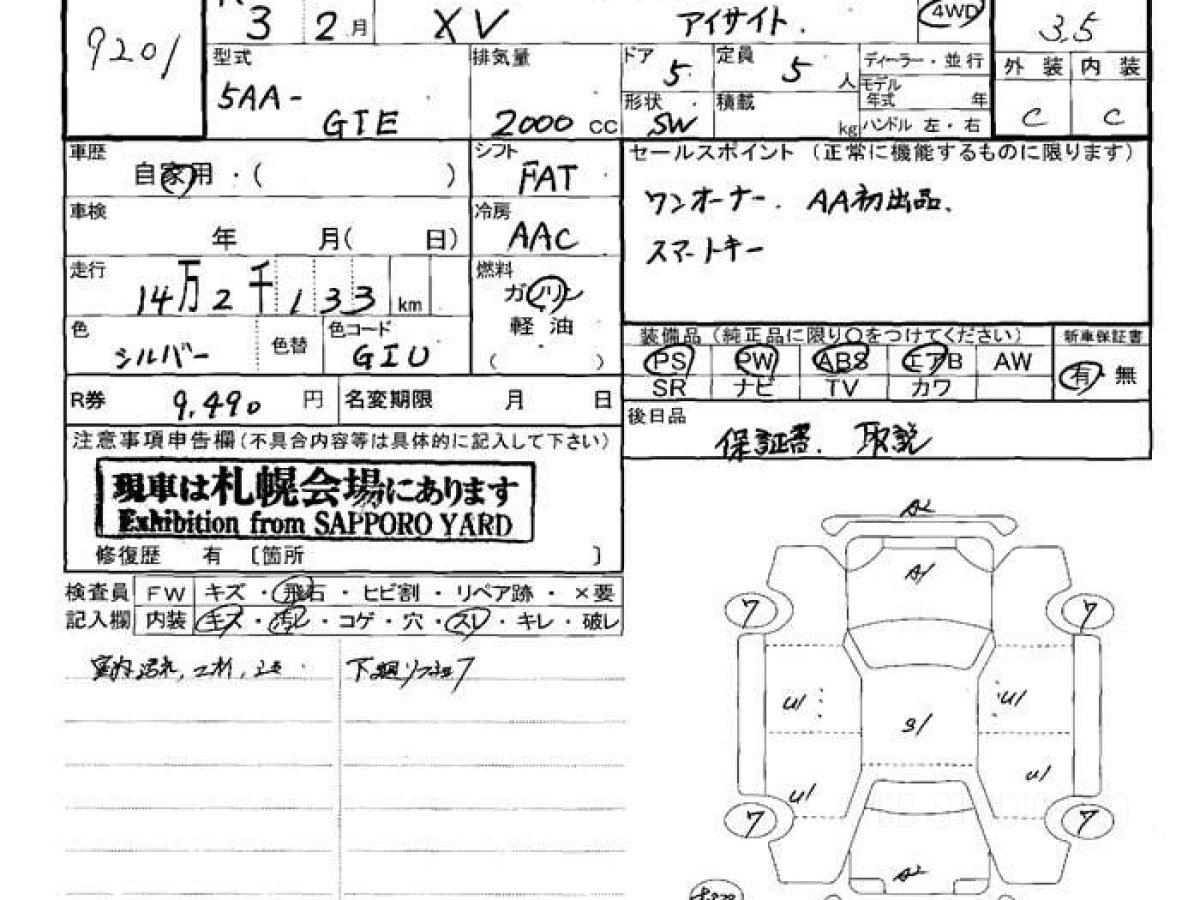 9201
3 2月 XV アイサイト. 4WD 3.5
型式 5AA- GTE
排気量 2000 cc
ドア 5 定員 5 人
ディーラー・並行
モデル年式 年
形状 SW 積載 kg
ハンドル 左・右
外装 内装
C C
車歴 自家用・( )
シフト FAT
車検 年 月( 日)
冷房 AAC
走行 14万2千133km
燃料 ガソリン
軽油
( )
色 シルバー 色替 色コード GIU
セールスポイント (正常に機能するものに限ります)
ワンオーナー. AA初出品、
スマートキー
装備品 (純正品に限り○をつけてください) 新車保証書
PS PW ABS エアB AW 有 無
SR ナビ TV カワ
R券 9,490 円 名変期限 月 日
後日品 保証書. 取説
注意事項申告欄(不具合内容等は具体的に記入して下さい)
現車は札幌会場にあります
Exhibition from SAPPORO YARD
修復歴 有 〔箇所 〕
検査員 FW キズ・飛石・ヒビ割・リペア跡・×要
記入欄 内装 キズ・汚レ・コゲ・穴・スレ・キレ・破レ
A2
A1
7 7
U1 U1
S1
U1 U1
7 7
A2